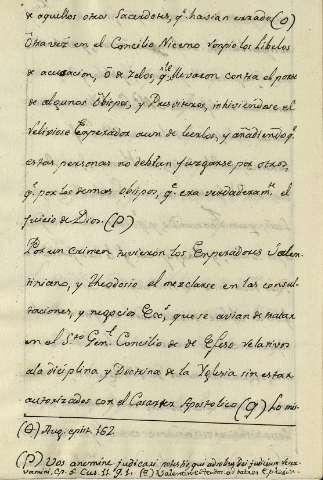 de aquellos otros Sacerdotes, q.e havian errado (O)
Otra vez en el Concilio Niceno rompio los libelos
de acusacion, ó de zelos, q.e se le llevaron contra el porte
de algunos Obispos, y Presviteros, inhiviendose el
religioso Emperador aun de leerlos, y añadiendo q.e
estas personas no debian juzgarse por otros,
q.e por los demas Obispos, q.e era verdaderam.te el
juicio de Dios. (P)
Por un crimen tuvieron los Emperadores Valen-
tiniano, y Theodosio el mezclarse en las consul-
taciones, y negocios Ecc.s que se avian de tratar
en el S.to Gen.l Concilio de de Efeso relativos
a la diciplina y Doctrina de la Yglesia sin estar
autorizados con el Caracter Apostolico (q) Lo mis-
(O) Aug. epist. 162.
(P) Vos a nemine judicari potestis qui ad solius dei judicium reser-
vamini, Cp. 5. Cus. 11. q. 1. (q) Valentin. et Theodos.